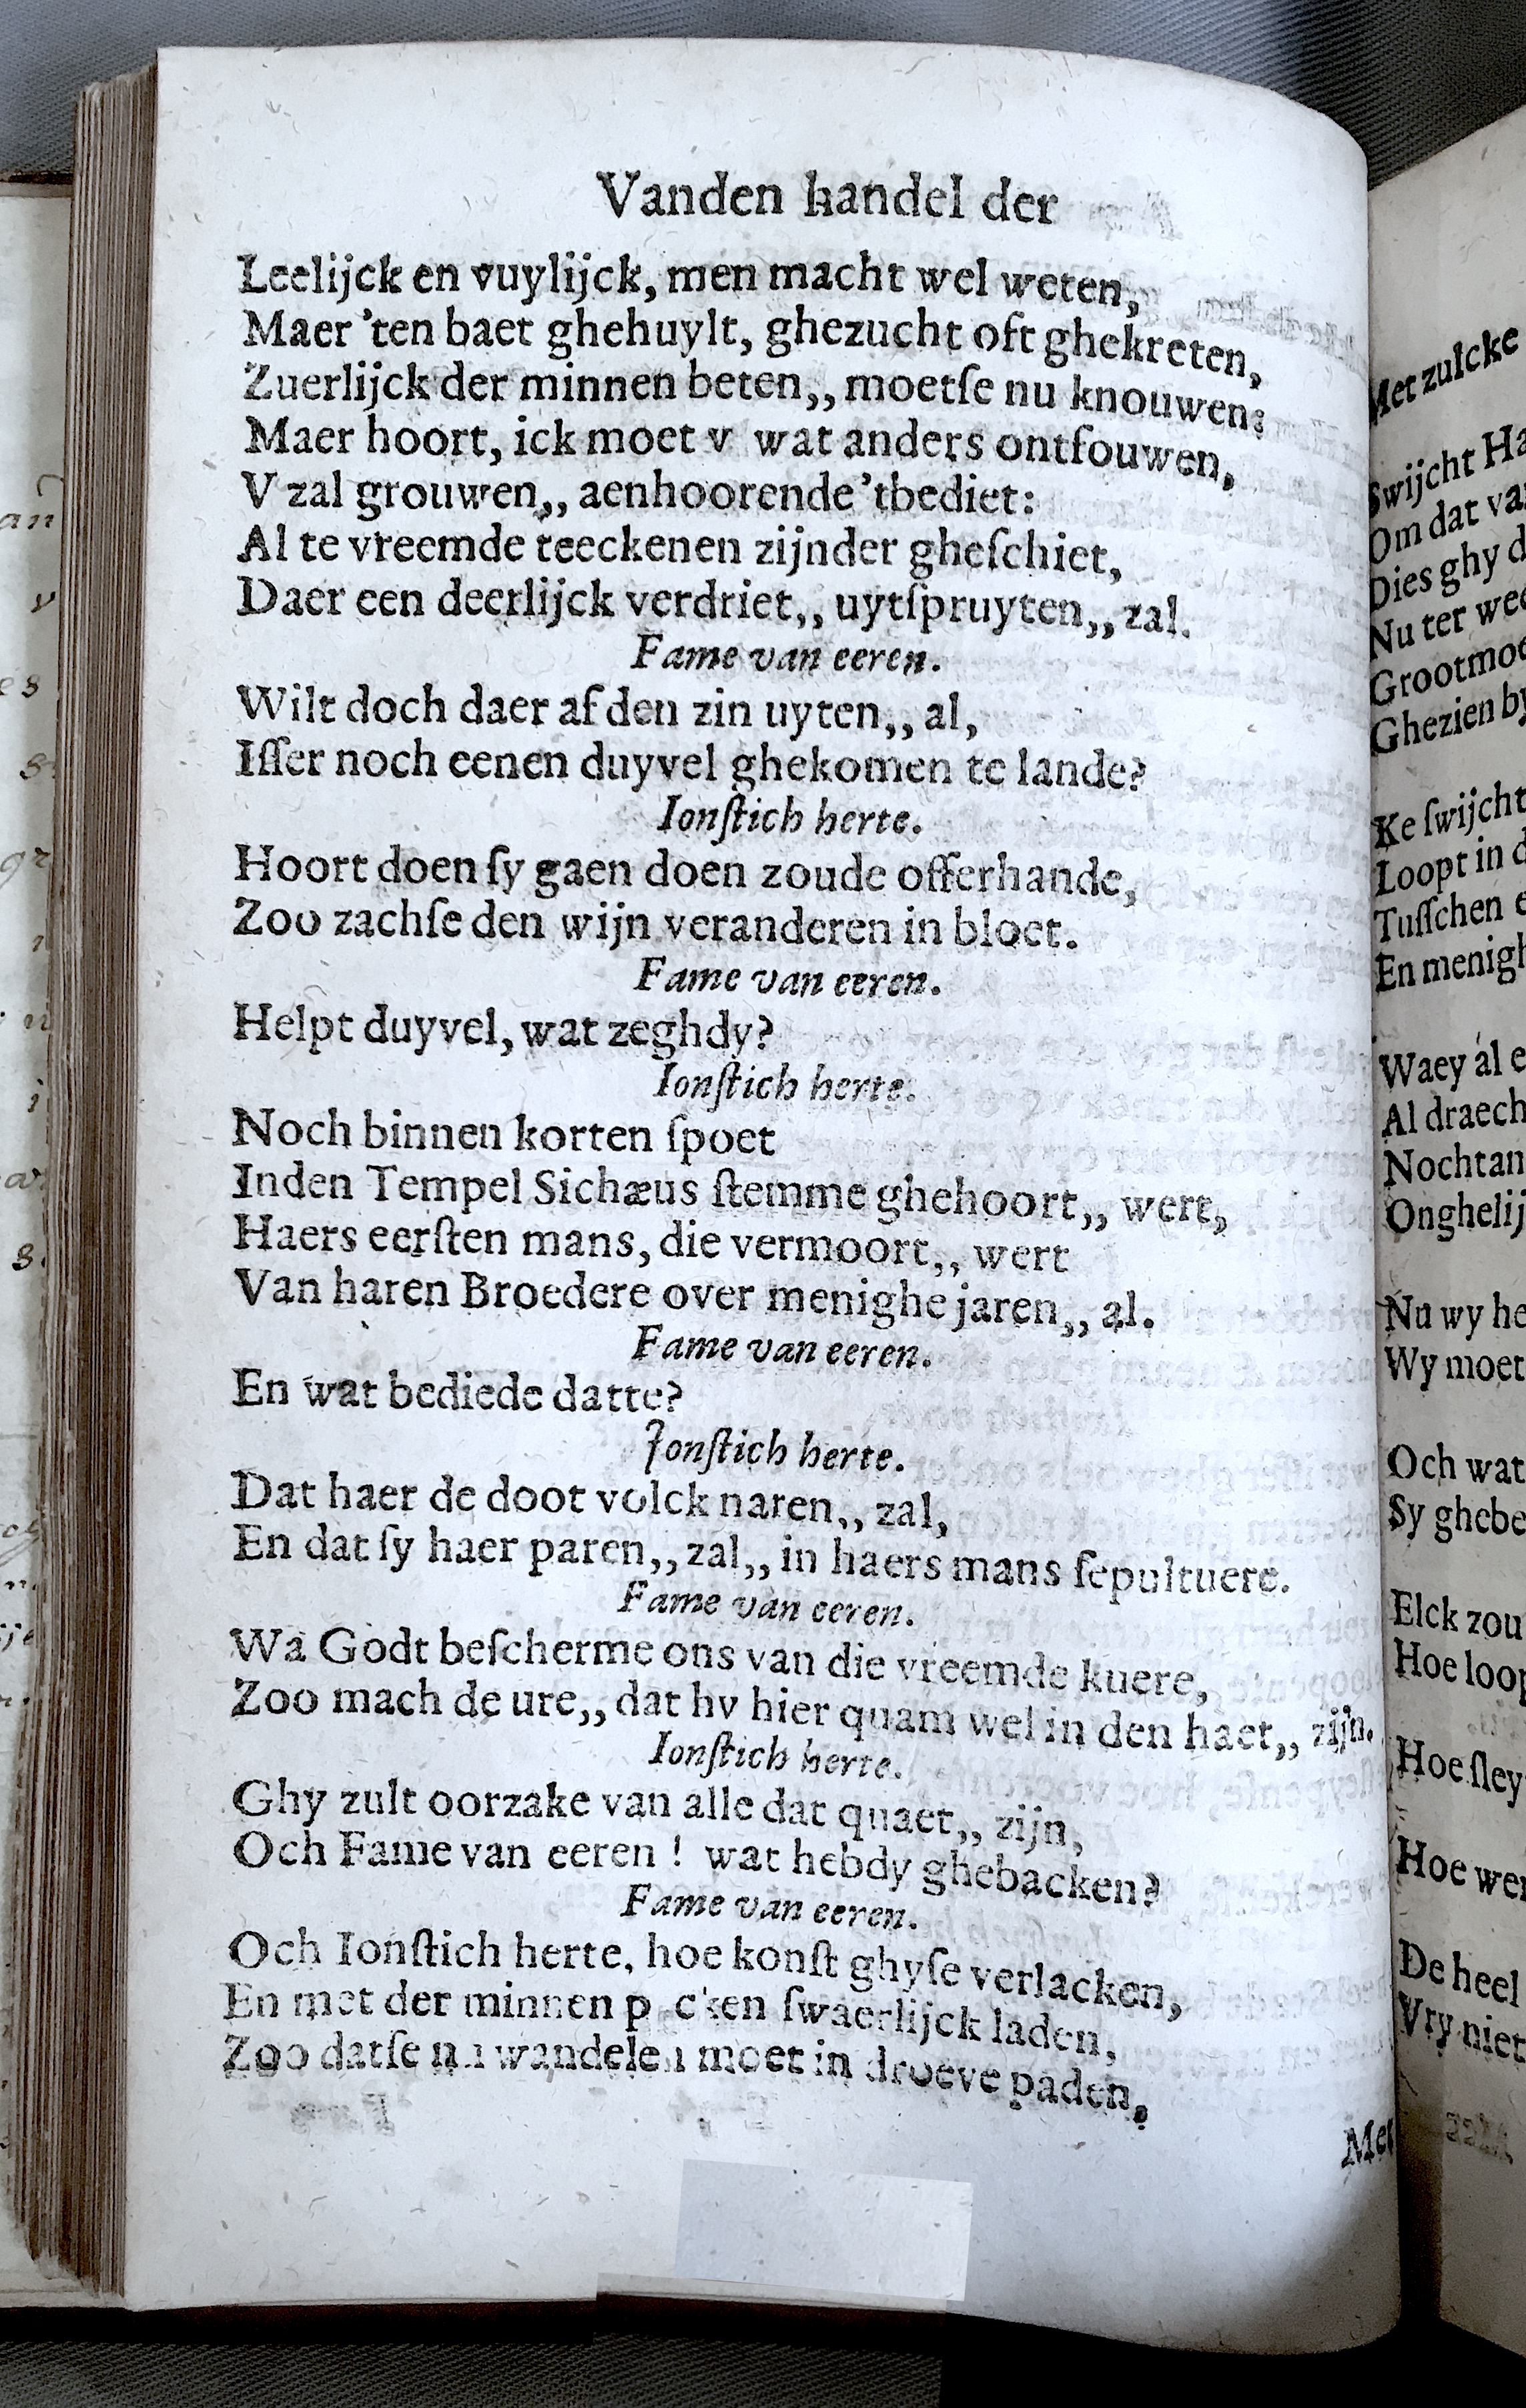 Vanden handel der
Leelijck en vuylijck, men macht wel weten,
Maer 'ten baet ghehuylt, ghezucht oft ghekreten,
Zuerlijck der minnen beten,, moetſe nu knouwen:
Maer hoort, ick moet v wat anders ontfouwen,
V zal grouwen,, aenhoorende 'tbediet:
Al te vreemde teeckenen zijnder gheſchiet,
Daer een deerlijck verdriet,, uytſpruyten,, zal.
Fame van eeren.
Wilt doch daer af den zin uyten,, al,
Iſſer noch eenen duyvel ghekomen te lande?
Ionſtich herte.
Hoort doen ſy gaen doen zoude offerhande,
Zoo zachſe den wijn veranderen in bloet.
Fame van eeren.
Helpt duyvel, wat zeghdy?
Ionſtich herte.
Noch binnen korten ſpoet
Inden Tempel Sichæus ſtemme ghehoort,, wert,
Haers eerſten mans, die vermoort,, wert
Van haren Broedere over menighe jaren,, al.
Fame van eeren.
En wat bediede datte?
Jonſtich herte.
Dat haer de doot volck naren,, zal,
En dat ſy haer paren,, zal,, in haers mans ſepultuere.
Fame van eeren.
Wa Godt beſcherme ons van die vreemde kuere,
Zoo mach de ure,, dat hy hier quam wel in den haet,, zijn.
Ionſtich herte.
Ghy zult oorzake van alle dat quaet,, zijn,
Och Fame van eeren ! wat hebdy ghebacken?
Fame van eeren.
Och Ionſtich herte, hoe konſt ghyſe verlacken,
En met der minnen ſwaerlijck laden,
Zoo datſe nu wandelen moet in droeve paden,
Met
Met zulcke
Swijcht
Om dat
Dies ghy
Nu ter
Ghezien
Ke ſwijcht
Loopt in
Tuſſchen
En
Waey al
Al
Nu wy
Wy
Och wat
Sy
Elck
Hoe
Hoe
Hoe
De heel
Vry niet